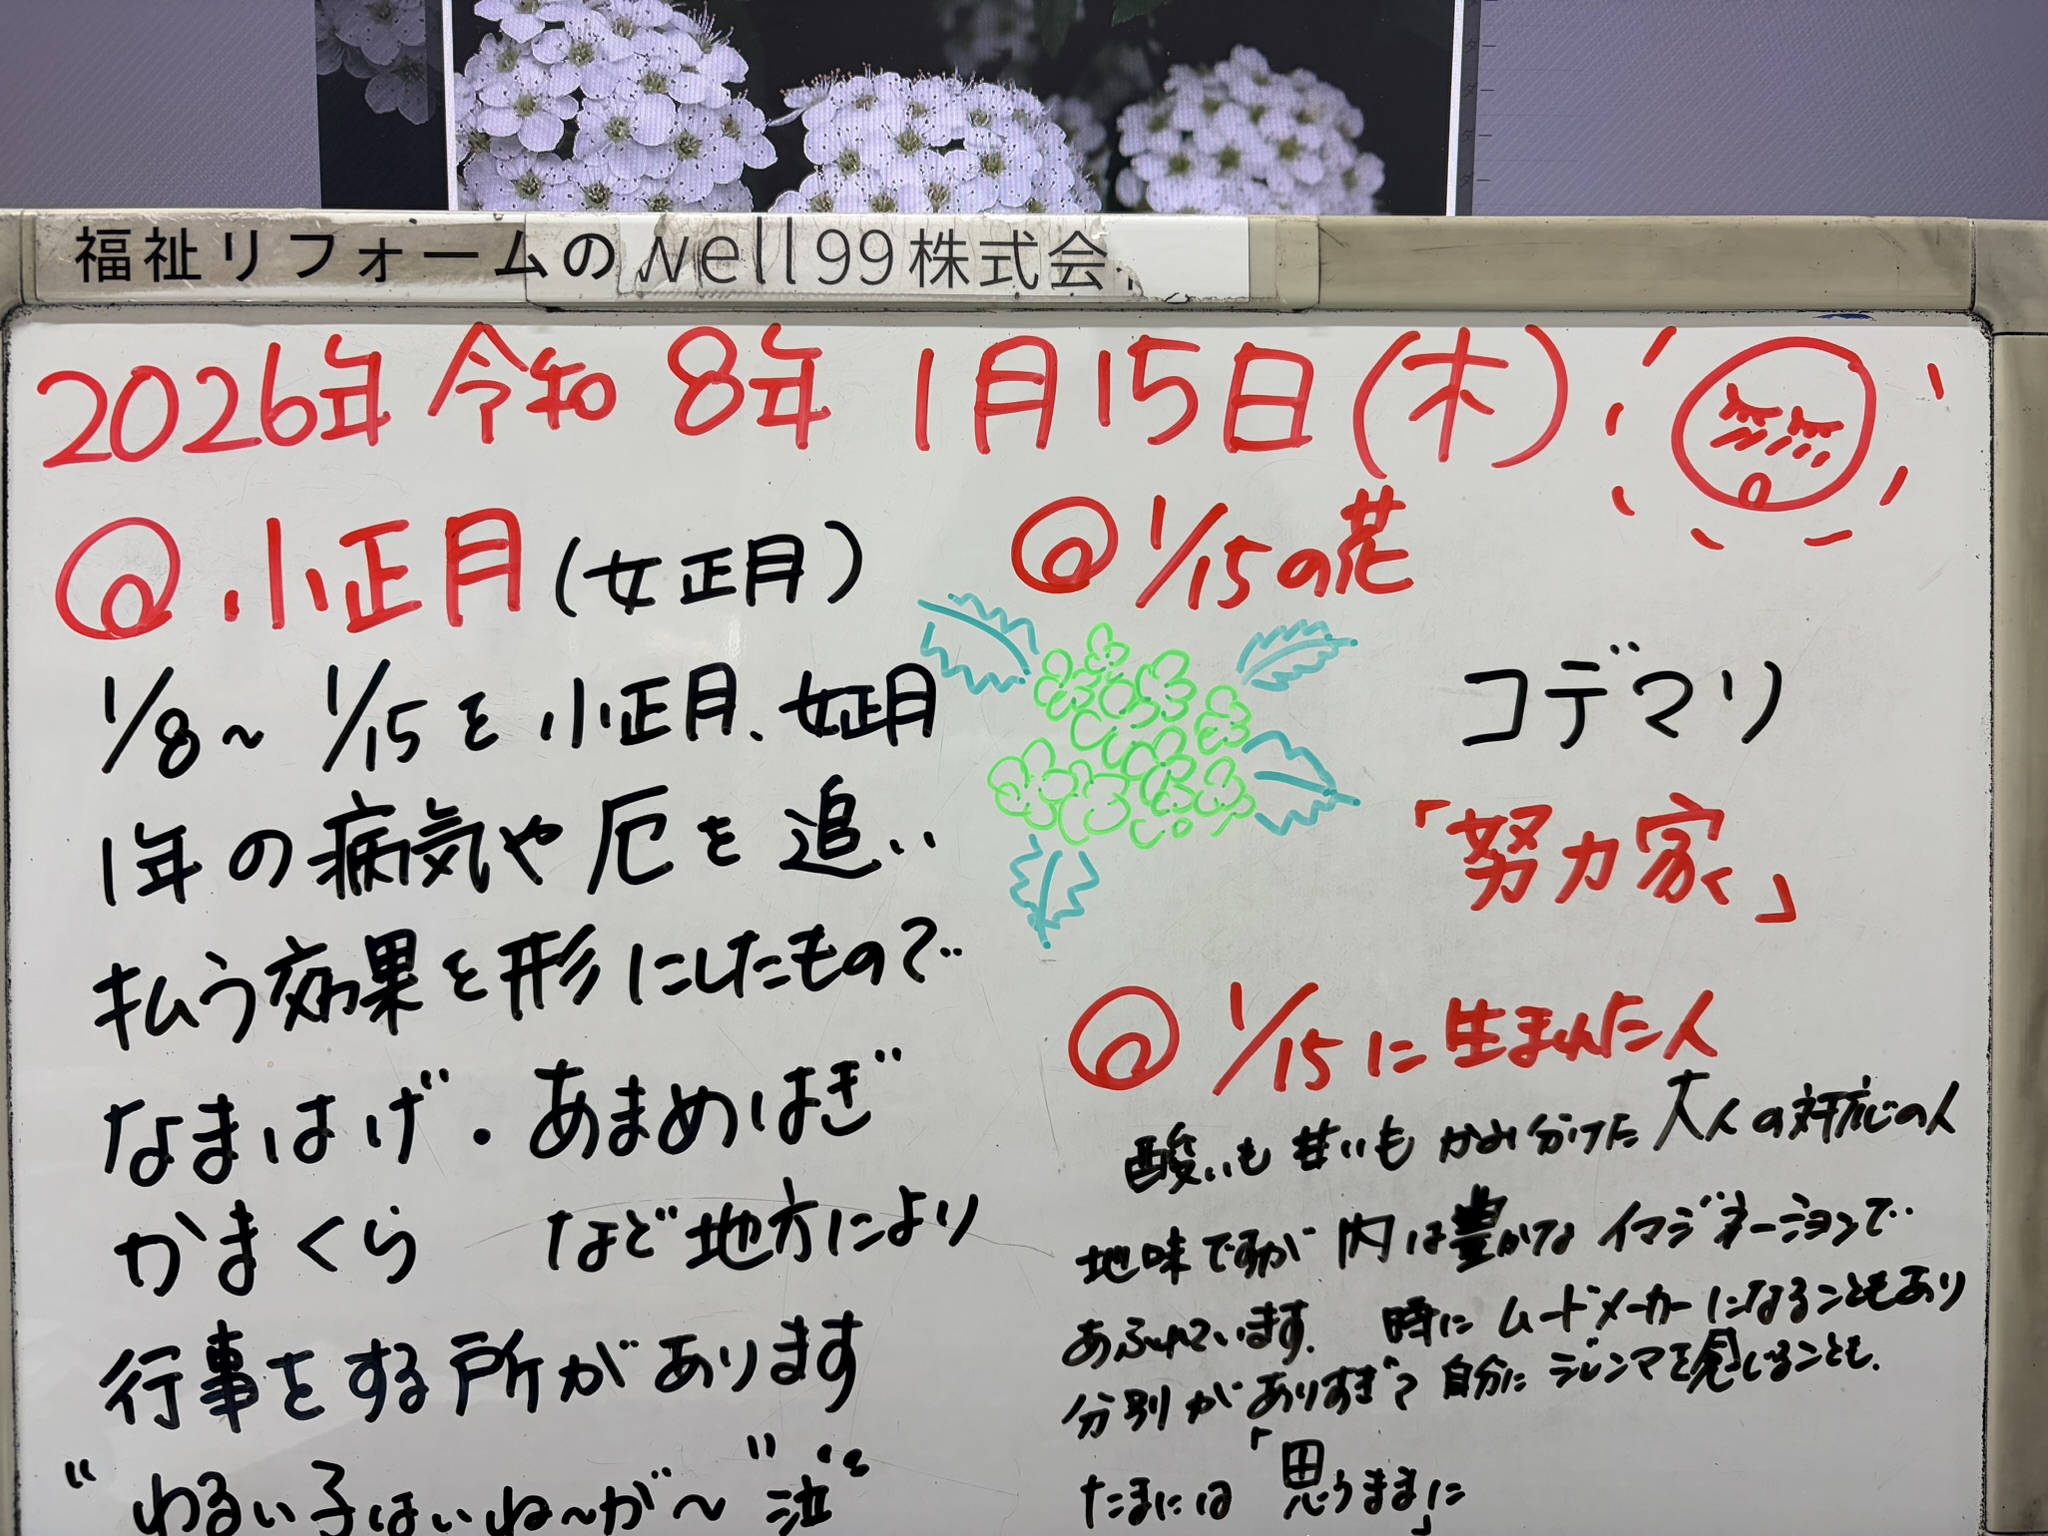 福祉リフォームのwell99株式会
2026年 令和8年 1月15日(木)
小正月(女正月)
1/8~1/15を小正月、女正月
1年の病気や厄を追い
払う効果を形にしたもので
なまはげ・あまめはぎ
かまくら など地方により
行事をする所があります
"わるい子はいね~が~" "泣"
1/15の花
コデマリ
「努力家」
1/15に生まれた人
酸いも甘いもかみ分けた大人の対応の人
地味ですが内は豊かなイマジネーションで
あふれています。時にムードメーカーになることもあり
分別がありすぎて自分にジレンマを感じることも。
たまには「思うまま」に